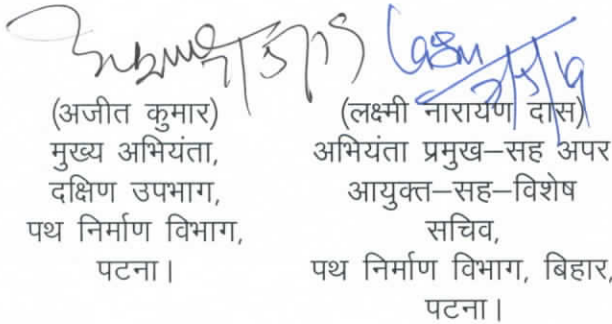 (अजीत कुमार)
मुख्य अभियंता,
दक्षिण उपभाग,
पथ निर्माण विभाग,
पटना।
(लक्ष्मी नारायण दास)
अभियंता प्रमुख–सह अपर
आयुक्त–सह–विशेष
सचिव,
पथ निर्माण विभाग, बिहार,
पटना।